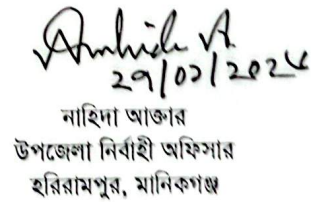 29/02/2024
নাহিদা আক্তার
উপজেলা নির্বাহী অফিসার
হরিরামপুর, মানিকগঞ্জ